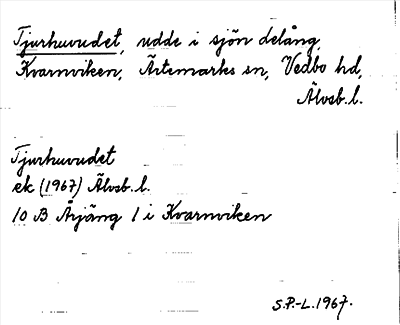 Tjurhuvudet, udde i sjön Delång,
Kvarnviken, Ärtemarks sn, Vedbo hd,
Älvsb. l.
Tjurhuvudet
ek (1967) Älvsb. l.
10 B Årjäng 1 i Kvarnviken
S.P.-L. 1967.